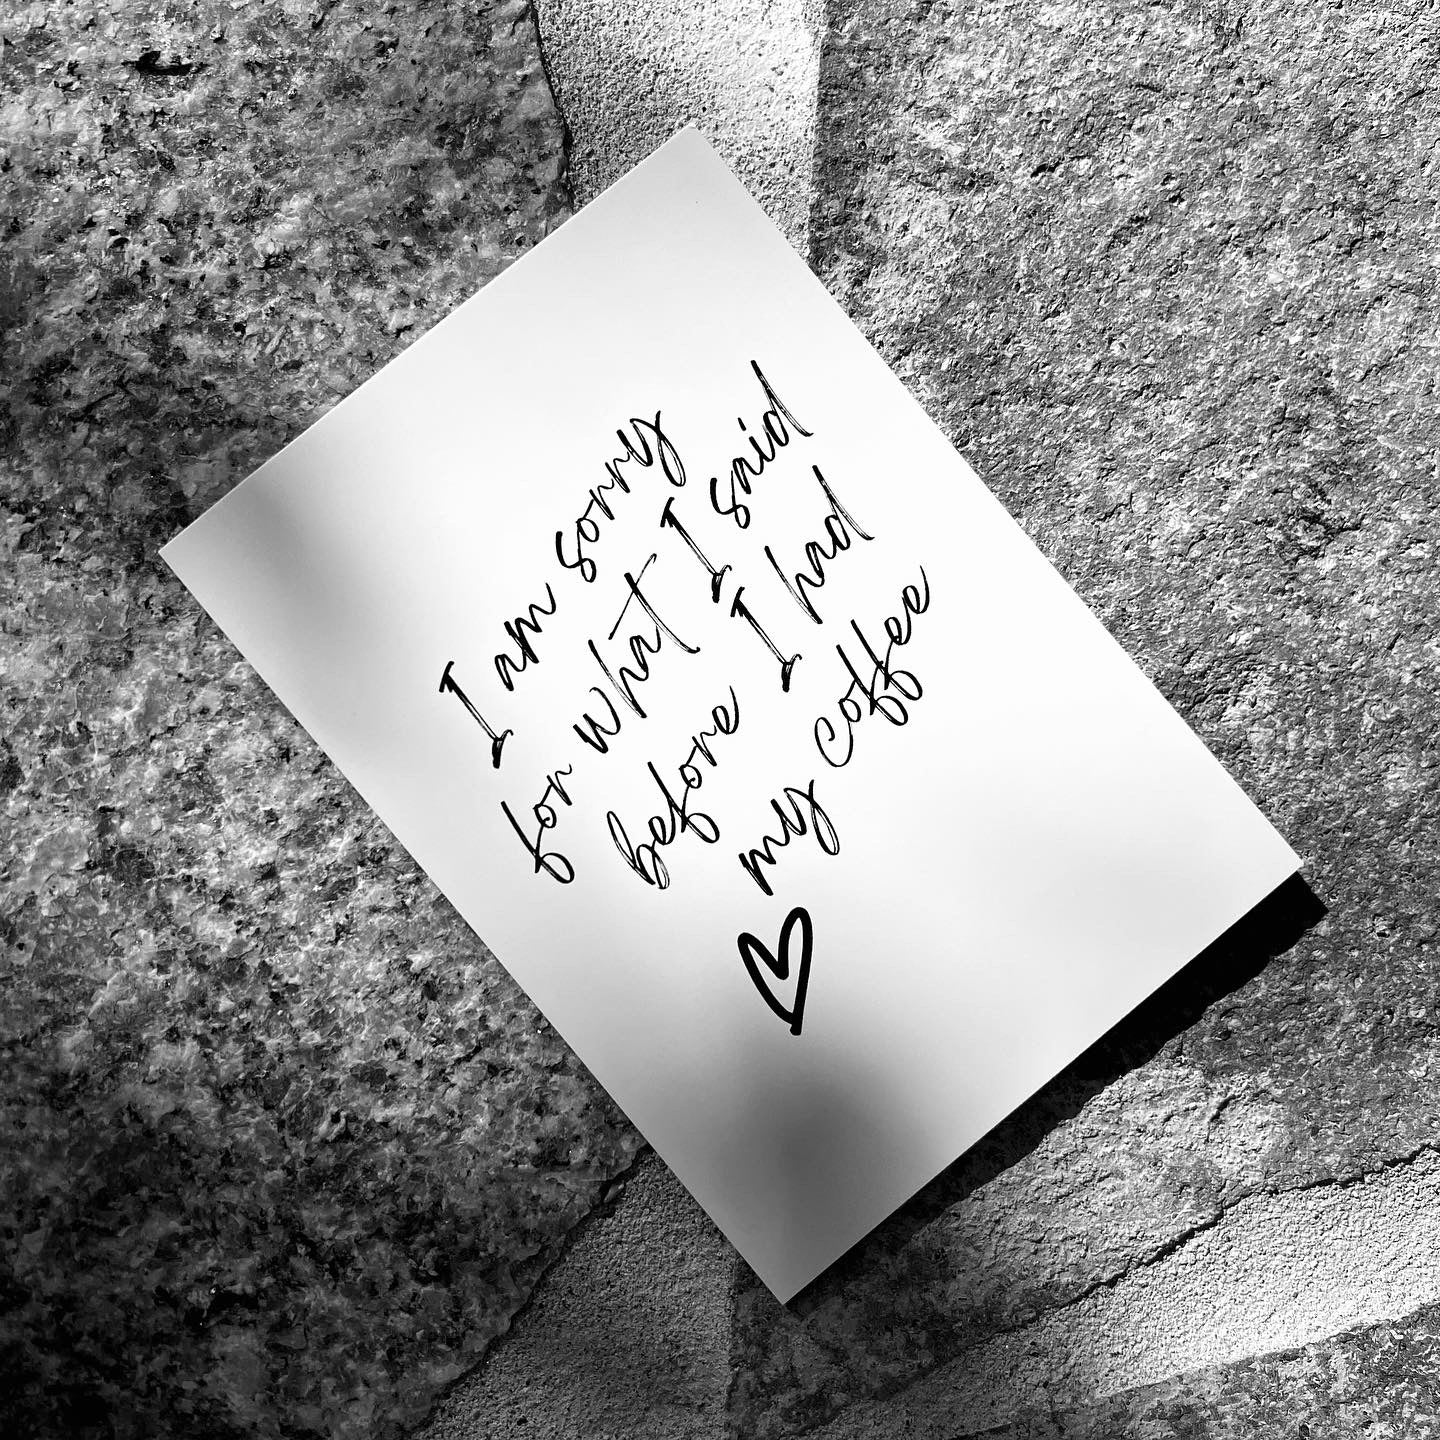 I am sorry
for what I said
before I had
my coffee